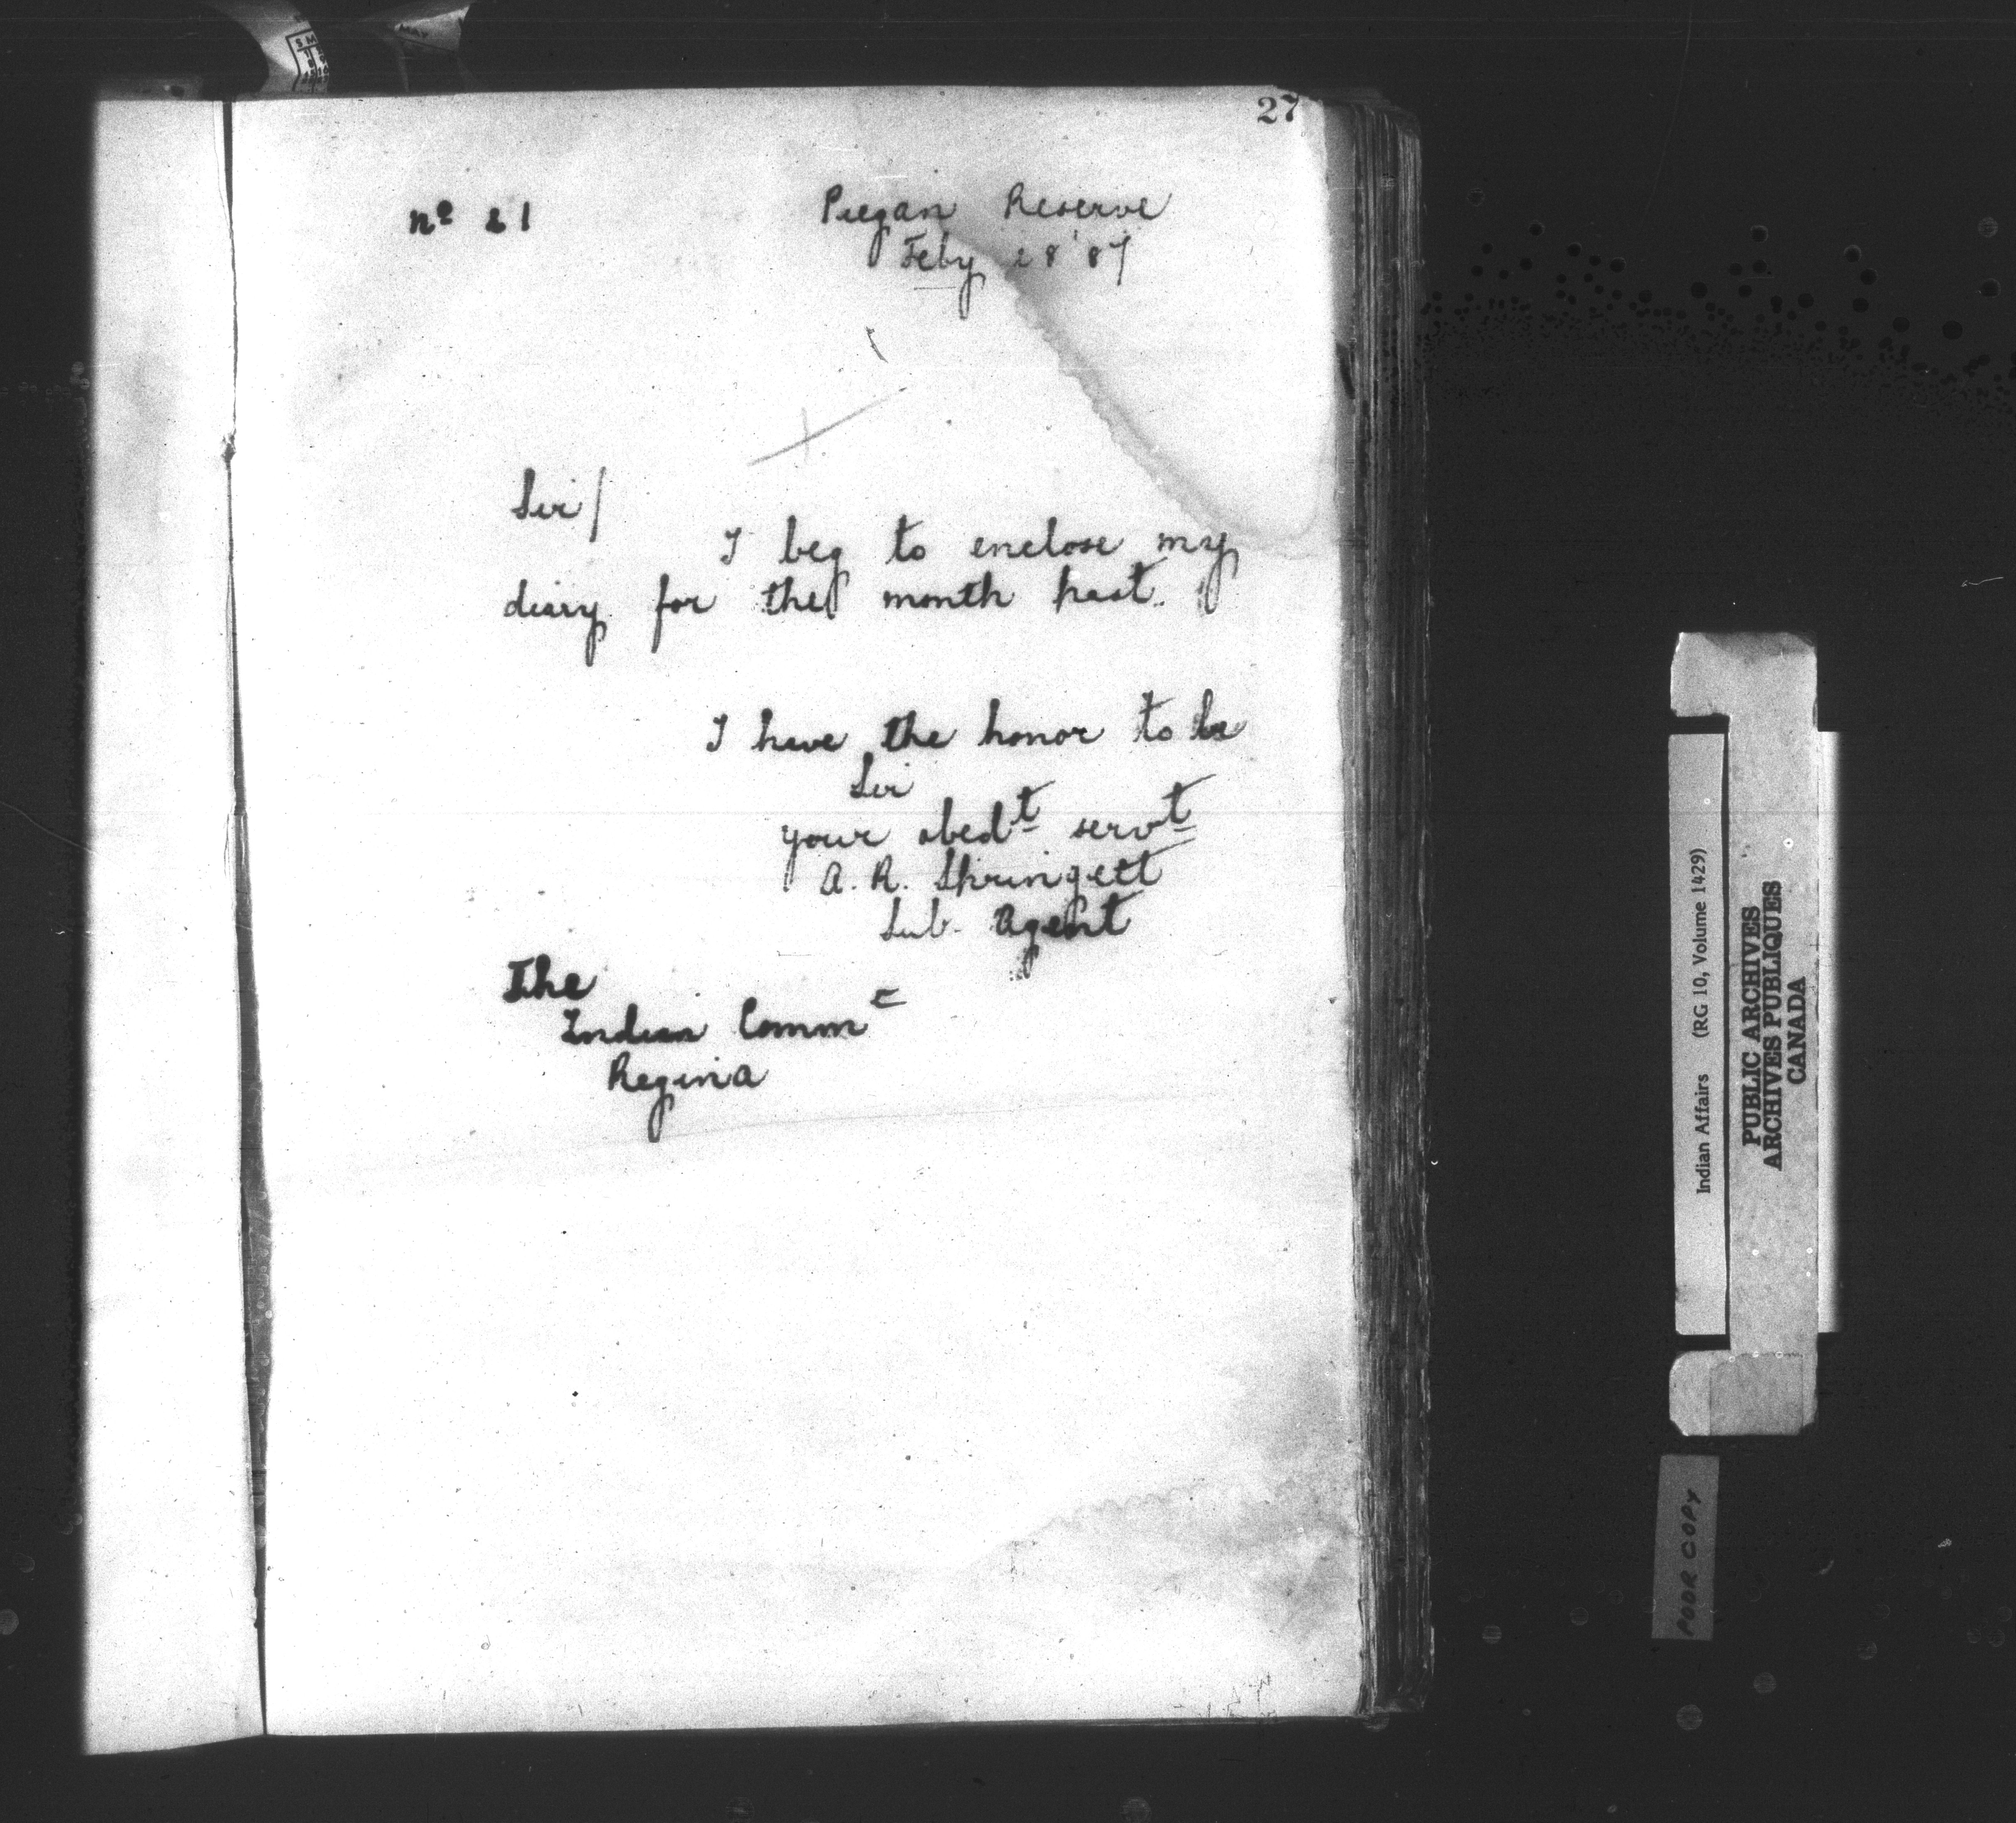 27
No 21
Piegan Reserve
Feby 28 '87
Sir/
I beg to enclose my
diary for the month past.
I have the honor to be
Sir
your obedt servt
A. R. Springett
Sub. Agent
The
Indian Commr
Regina
Indian Affairs (RG 10, Volume 1429)
PUBLIC ARCHIVES
ARCHIVES PUBLIQUES
CANADA
POOR COPY
MAY
S M